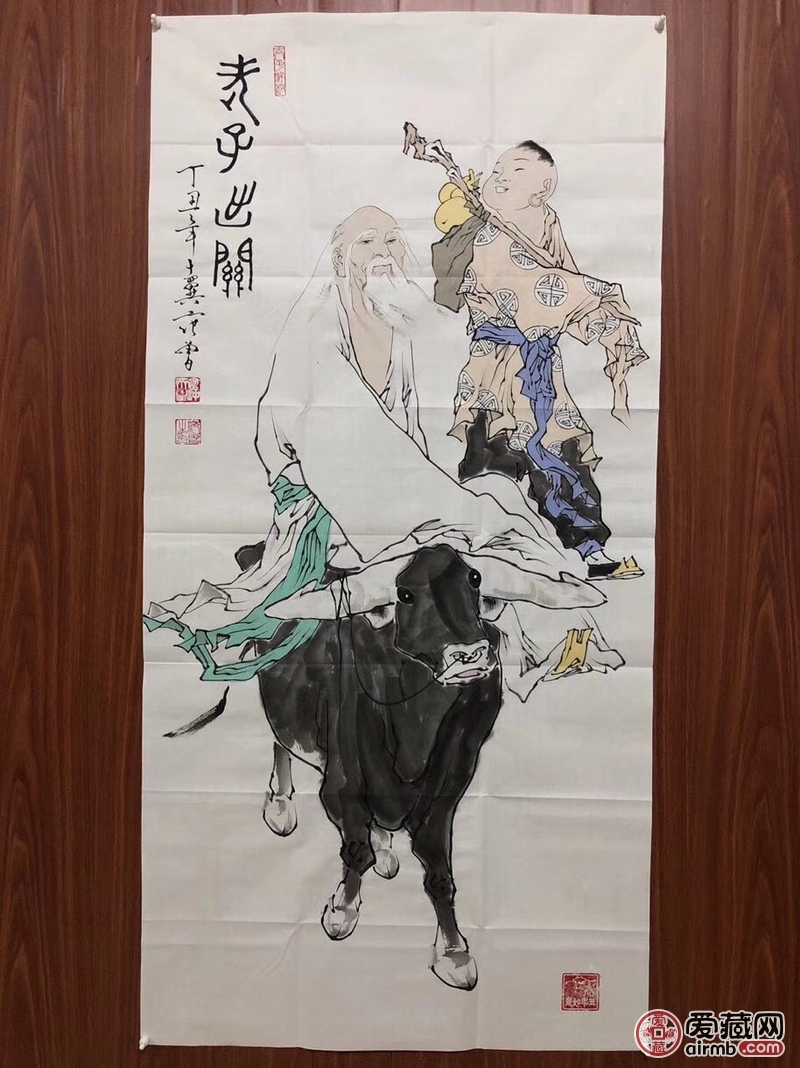 老子出關
丁丑年十翼范曾
爱藏网
airmb.com